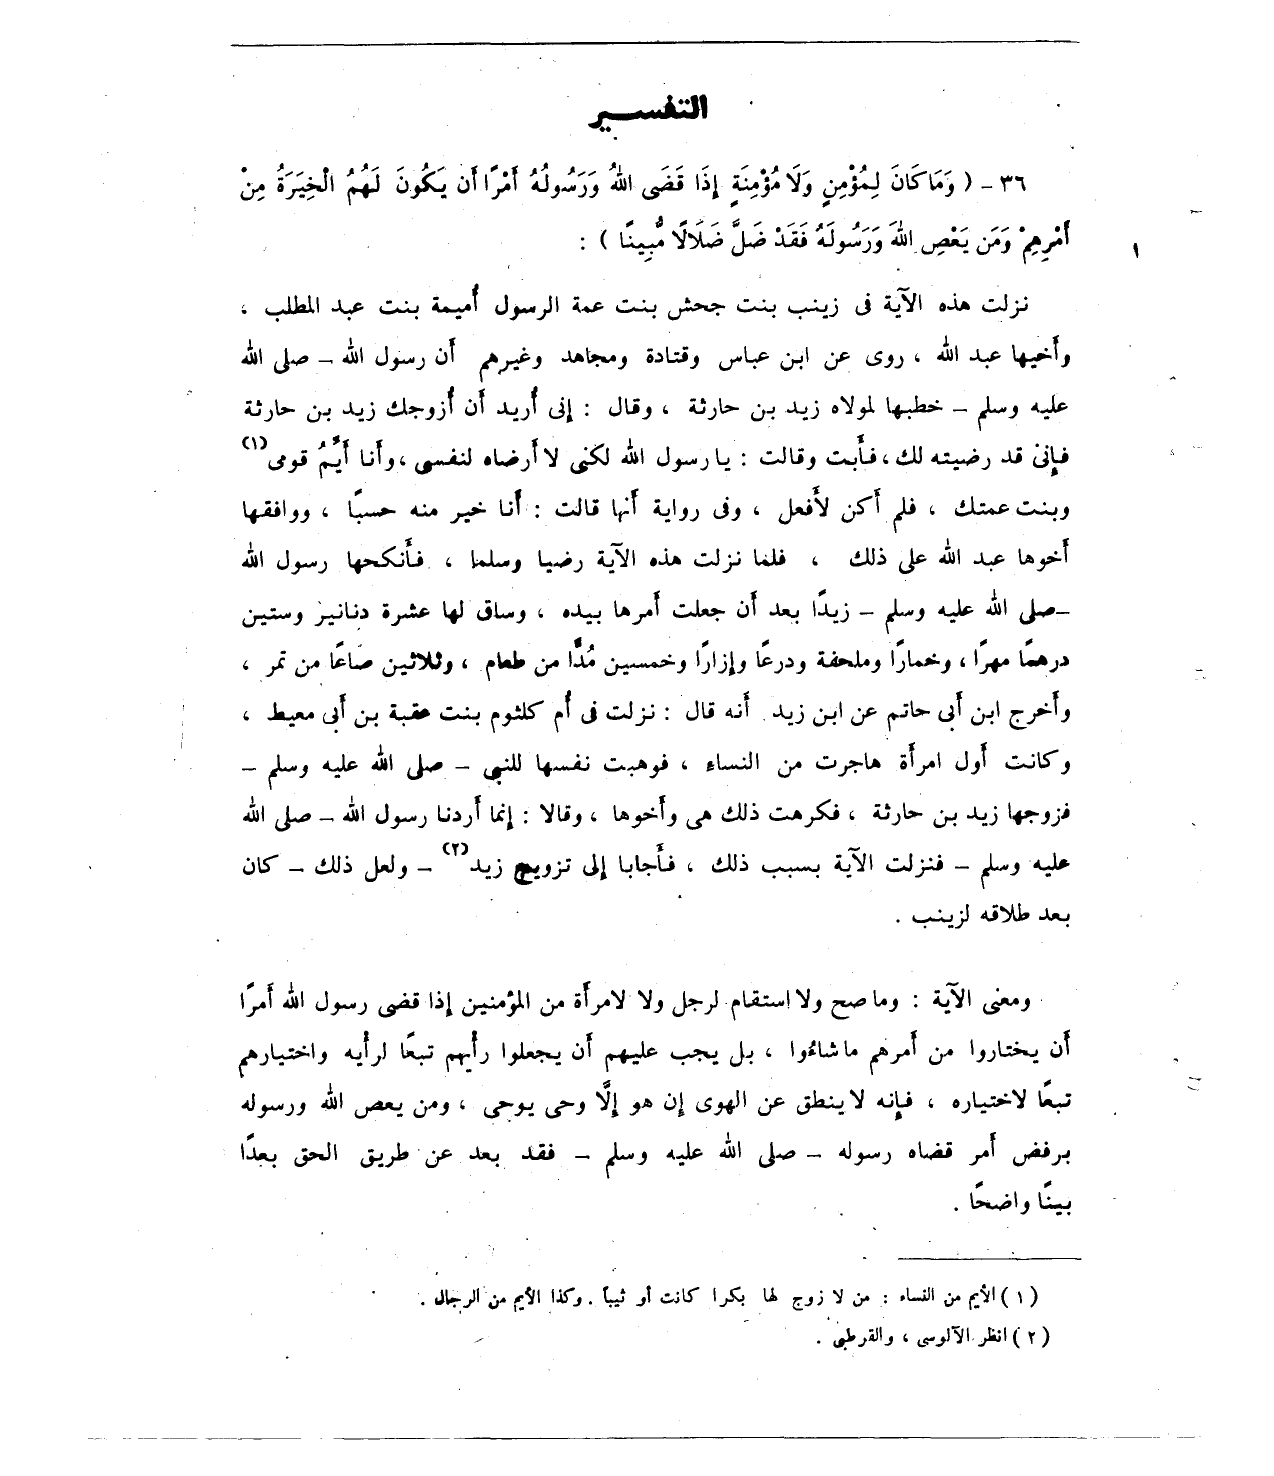 التفسير
٣٦ - ( وَمَا كَانَ لِمُؤْمِنٍ وَلَا مُؤْمِنَةٍ إِذَا قَضَى اللهُ وَرَسُولُهُ أَمْرًا أَن يَكُونَ لَهُمُ الْخِيَرَةُ مِنْ
أَمْرِهِمْ وَمَن يَعْصِ اللهَ وَرَسُولَهُ فَقَدْ ضَلَّ ضَلَالًا مُّبِينًا ) :
نزلت هذه الآية فى زينب بنت جحش بنت عمة الرسول أُميمة بنت عبد المطلب ،
وأَخيها عبد الله ، روى عن ابن عباس وقتادة ومجاهد وغيرهم أَن رسول الله – صلى الله
عليه وسلم – خطبها لمولاه زيد بن حارثة ، وقال : إنى أُريد أَن أُزوجك زيد بن حارثة
فإنى قد رضيته لك ، فأَبت وقالت : يا رسول الله لكنى لا أَرضاه لنفسى ، وأَنا أَيِّمُ قومى(١)
وبنت عمتك ، فلم أَكن لأَفعل ، وفى رواية أَنها قالت : أَنا خير منه حسبًا ، ووافقها
أَخوها عبد الله على ذلك ، فلما نزلت هذه الآية رضيا وسلما ، فأَنكحها رسول الله
–صلى الله عليه وسلم – زيدًا بعد أَن جعلت أَمرها بيده ، وساق لها عشرة دنانير وستين
درهمًا مهرًا ، وخمارًا وملحفة ودرعًا وإزارًا وخمسين مُدًّا من طعام ، وثلاثين صاعًا من تمر ،
وأَخرج ابن أَبى حاتم عن ابن زيد أَنه قال : نزلت فى أُم كلثوم بنت عقبة بن أَبى معيط ،
وكانت أَول امرأَة هاجرت من النساء ، فوهبت نفسها للنبى – صلى الله عليه وسلم –
فزوجها زيد بن حارثة ، فكرهت ذلك هى وأَخوها ، وقالا : إنما أَردنا رسول الله – صلى الله
عليه وسلم – فنزلت الآية بسبب ذلك ، فأَجابا إلى تزويج زيد(٢) – ولعل ذلك – كان
بعد طلاقه لزينب .
ومعنى الآية : وما صح ولا استقام لرجل ولا لامرأَة من المؤمنين إذا قضى رسول الله أَمرًا
أَن يختاروا من أَمرهم ما شاءُوا ، بل يجب عليهم أَن يجعلوا رأْيهم تبعًا لرأْيه واختيارهم
تبعًا لاختياره ، فإنه لا ينطق عن الهوى إن هو إلَّا وحى يوحى ، ومن يعص الله ورسوله
برفض أَمر قضاه رسوله – صلى الله عليه وسلم – فقد بعد عن طريق الحق بعدًا
بينًا واضحًا .
( ١ ) الأيم من النساء : من لا زوج لها بكرا كانت أو ثيبا . وكذا الأيم من الرجال .
( ٢ ) انظر الآلوسى ، والقرطبى .